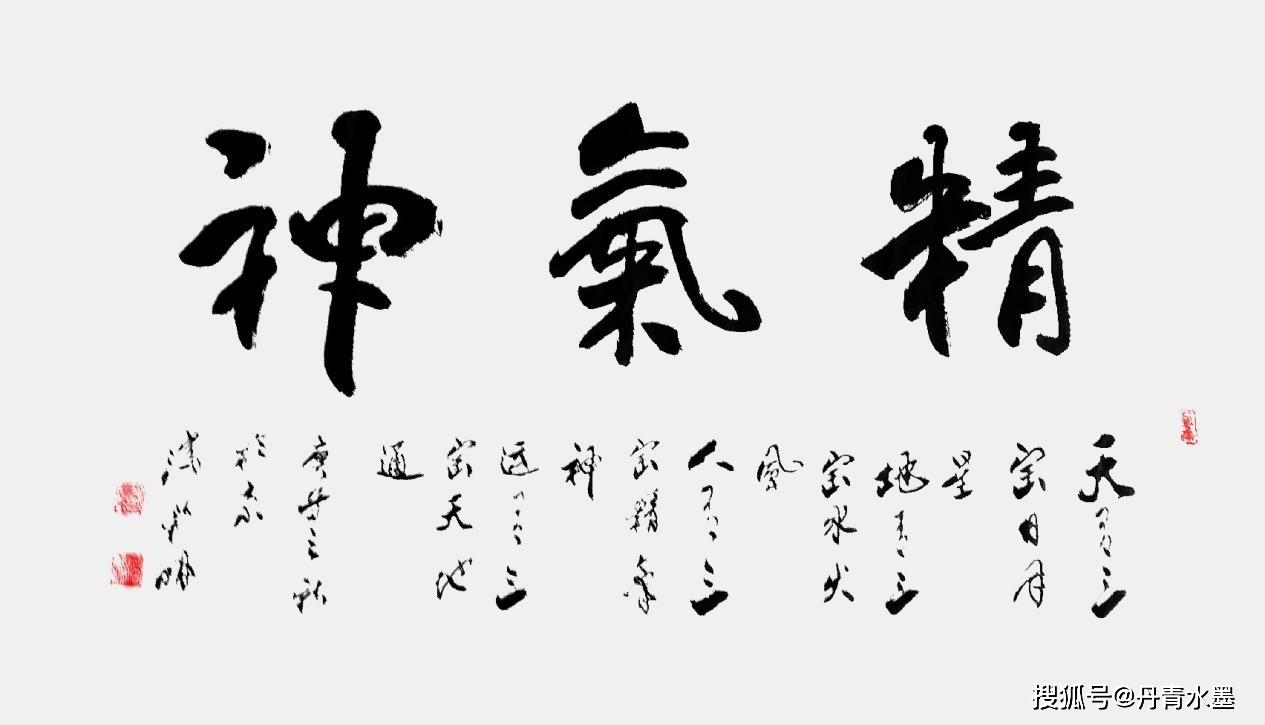 精氣神
天有三
宝日月
星
地有三
宝水火
風
人有三
宝精氣
神
三
宝天地
通
庚子之秋
於京
明
搜狐号@丹青水墨